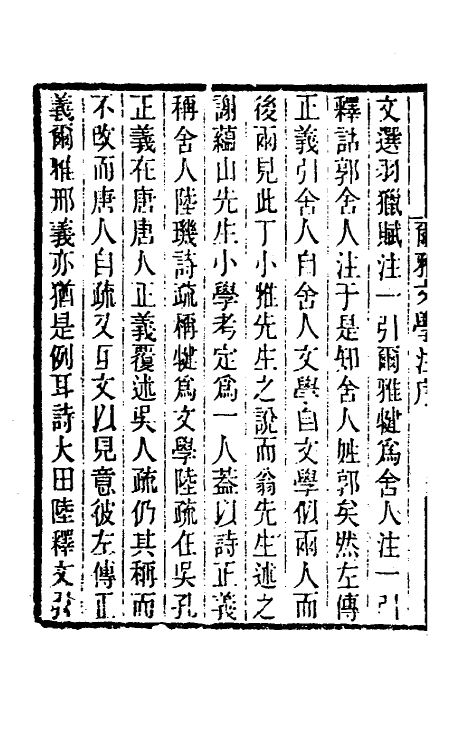 爾雅文學注序
文選羽獵賦注一引爾雅犍爲舍人注一引
釋詁郭舍人注于是知舍人姓郭矣然左傳
正義引舍人自舍人文學自文學似兩人而
後爾見此丁小雅先生之說而翁先生述之
謝蘊山先生小學考定爲一人蓋以詩正義
稱舍人陸璣詩疏稱犍爲文學陸疏在吳孔
正義在唐唐人正義覆述吳人疏仍其稱而
不改而唐人自疏又互文以見意彼左傳正
義爾雅邢義亦猶是例耳詩大田陸釋文引